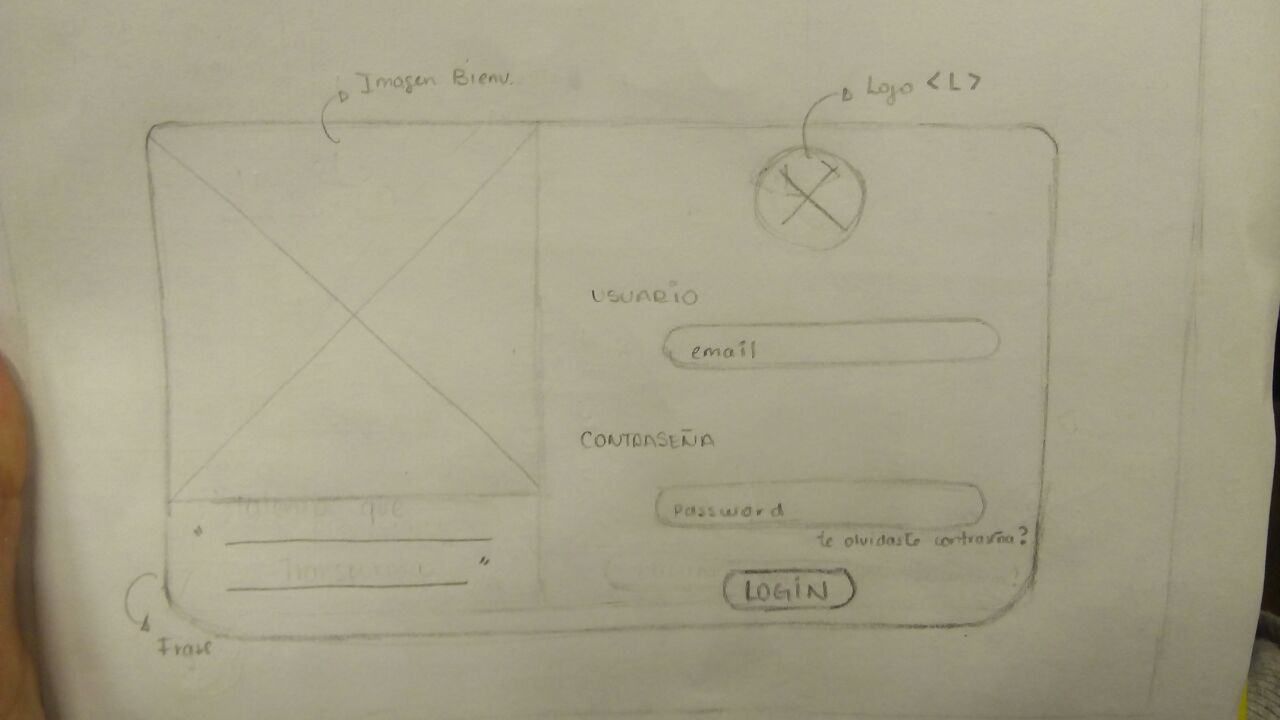 Imagen Bienv.
Logo < L >
USUARIO
email
CONTRASEÑA
password
te olvidaste contraseña?
LOGIN
que
"
"
Frase